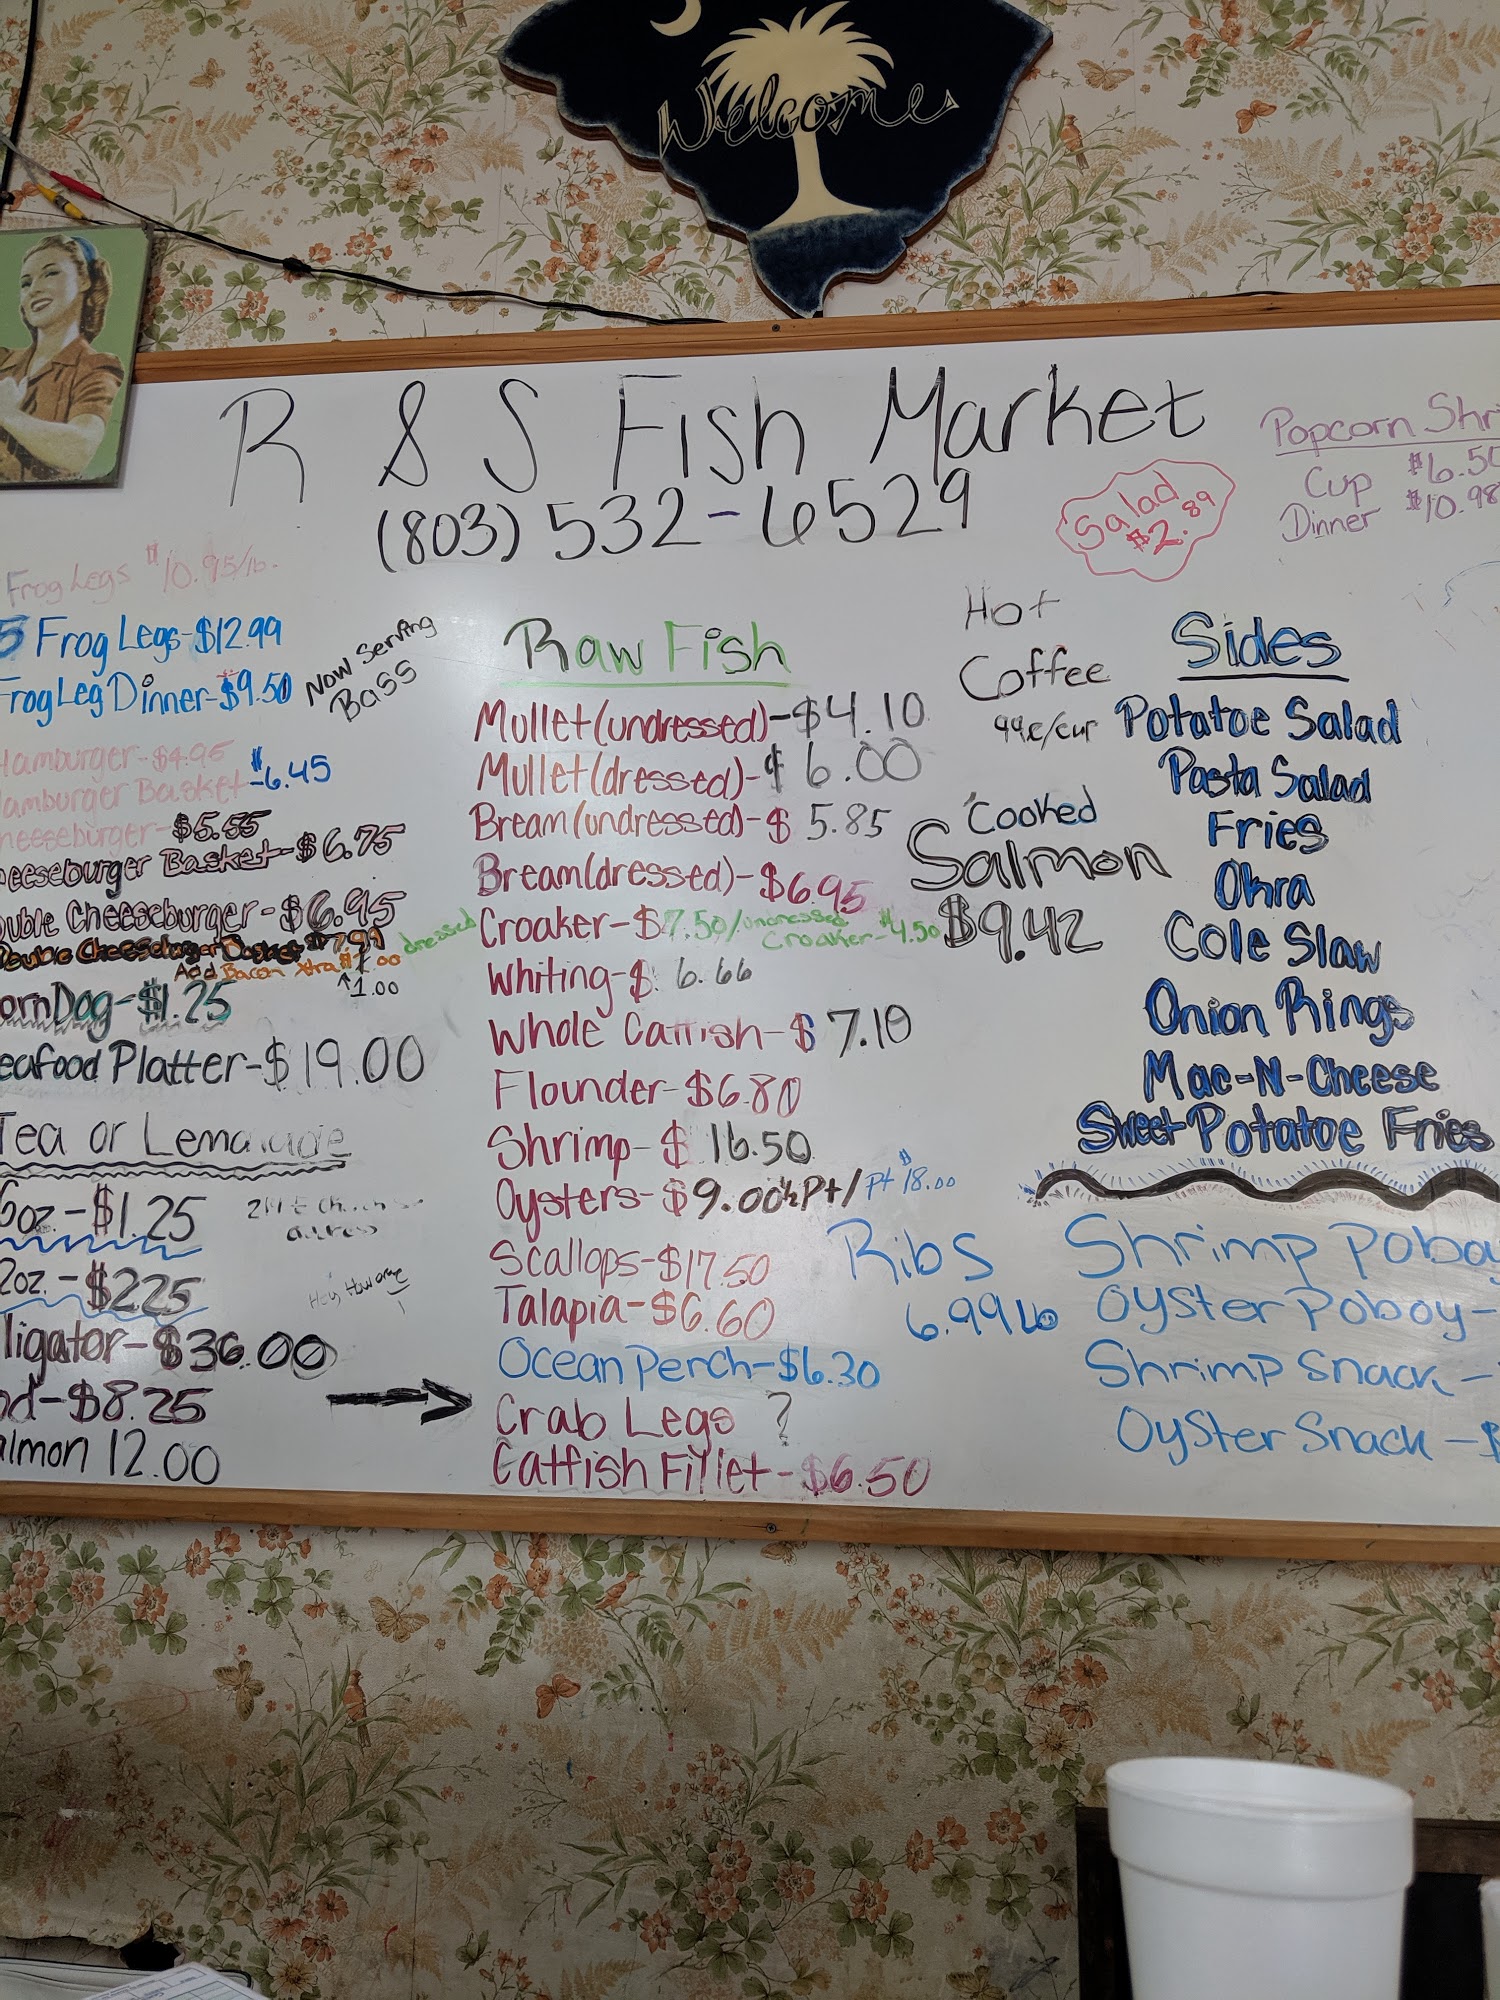 Welcome
R & S Fish Market
(803) 532-6529
Salad
$2.89
Popcorn Shri
Cup $6.50
Dinner $10.98
Frog Legs $10.95/lb.
5 Frog Legs-$12.99
Frog Leg Dinner-$9.50
Now Serving
Bass
Hamburger-$4.95
Hamburger Basket-$6.45
heeseburger-$5.55
eeseburger Basket-$6.75
ouble Cheeseburger-$6.95
Double Cheeseburger Basket $7.99
Add Bacon Xtra $1.00
↑1.00
ornDog-$1.25
eafood Platter-$19.00
Tea or Lemonade
6oz.-$1.25
2oz.-$2.25
lligator-$36.00
od-$8.25
almon 12.00
Raw Fish
Mullet(undressed)-$4.10
Mullet(dressed)-$6.00
Bream(undressed)-$5.85
Bream(dressed)-$6.95
dressed Croaker-$7.50/undressed
Croaker-$4.50
Whiting-$6.66
Whole Catfish-$7.10
Flounder-$6.80
Shrimp-$16.50
Oysters-$9.00½Pt/Pt $18.00
Scallops-$17.50
Talapia-$6.60
Ocean Perch-$6.30
Crab Legs ?
Catfish Fillet-$6.50
Hot
Coffee
99¢/cup
Cooked
Salmon
$9.42
Ribs
6.99 lb
Sides
Potatoe Salad
Pasta Salad
Fries
Okra
Cole Slaw
Onion Rings
Mac-N-Cheese
Sweet Potatoe Fries
Shrimp Poboy
Oyster Poboy-
Shrimp Snack-
Oyster Snack-$